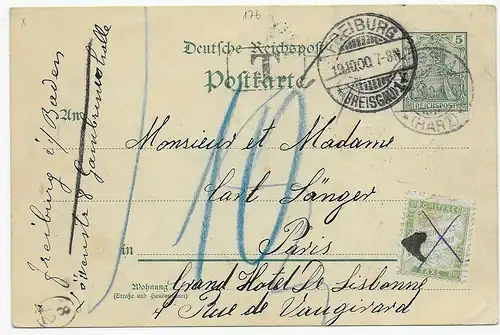 176
Deutsche Reichspost
Postkarte
5
REICHSPOST
FREIBURG
19.10.00. 7-8N.
(BREISGAU)
(HARZ)
T
An
Monsieur et Madame
Carl Sänger
in Paris
Wohnung
(Straße und Hausnummer)
Grand Hotel De Lisbonne
4 Rue de Vaugirard
Freiburg i/Baden
Löwenstr 8 Gambrinushalle
10
CHIFFRE
TAXE